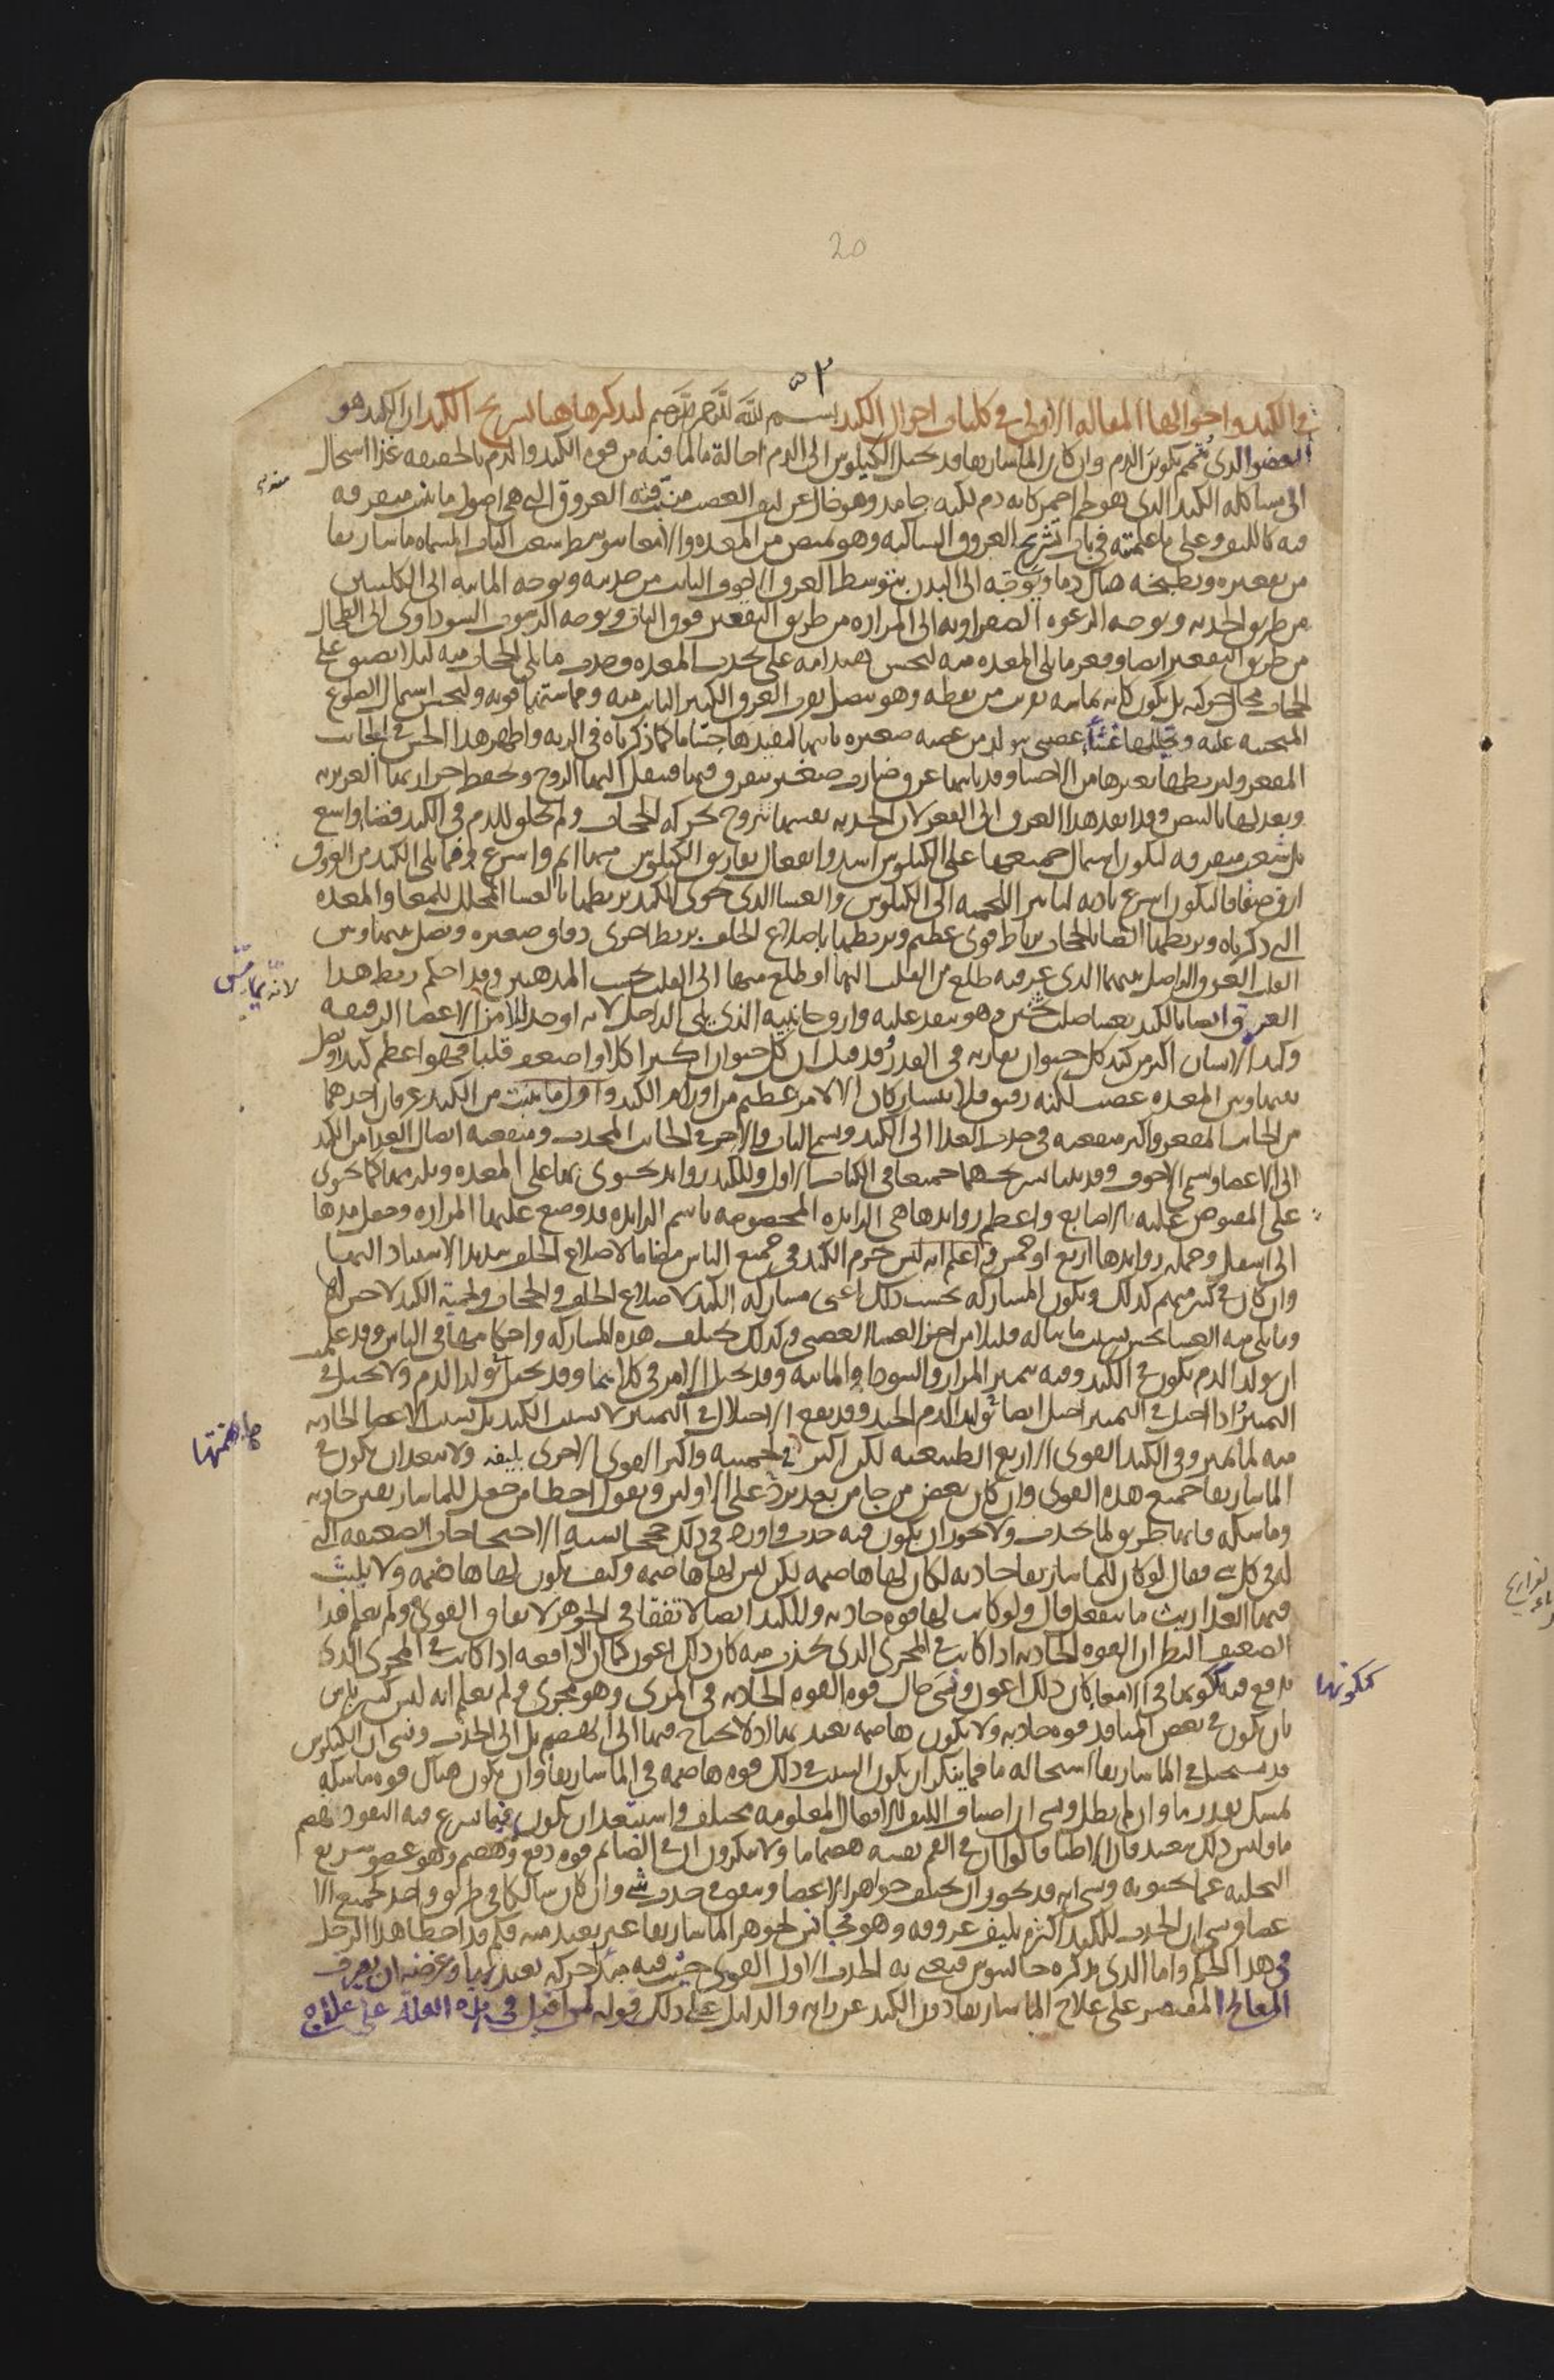 20
٥٣
في الكبد واحوالها المقالة الاولى في كليات احوال الكبد بسم الله الرحمن الرحيم لنذكر هاهنا تشريح الكبد ان الكبد هو
العضو الذي يتمم تكون الدم وان كان الماساريقا قد تحيل الكيلوس الى الدم احالة ما لما فيه من قوة الكبد والدم بالحقيقة غذا استحال
الى مشاكلة الكبد التي هو لحم احمر كانه دم لكنه جامد وهو خال عن ليف العصب منبثة فيه العروق التي هي اصول ما ينبت متفرقة
فيه كالليف وعلى ما علمته في باب تشريح العروق الساكنة وهو يمتص من المعدة والامعا بتوسط شعب الباب المسماة ماساريقا
من تقعيره ويطبخه هناك دما ويوجهه الى البدن بتوسط العرق الاجوف النابت من حدبته ويوجه المائية الى الكليتين
من طريق الحدبة ويوجه الرغوة الصفراوية الى المرارة من طريق التقعير فوق الباب ويوجه الرسوب السوداوي الى الطحال
من طريق التقعير ايضا وقعر ما يلي المعدة منه ليحسن هندامه على تحدب المعدة وحدب ما يلي الحجاب منه ليلا يضيق على
الحجاب مجال حركته بل يكون كانه يماسه بقرب من نقطة وهو يتصل بقرب العرق الكبير النابت منه ومماستها قوية وليحسن اشتمال الضلوع
المنحنية عليه ويجللها غشا عصبي يتولد من عصبة صغيرة ياتيها ليفيدها حسا ما كما ذكرناه في الرية واظهر هذا الحس في الجانب
المقعر وليربطها بغيرها من الاحشا وقد ياتيها عرق ضارب صغير يتفرق فيها فينقل اليها الروح ويحفظ حرارتها الغريزية
ويعدلها بالنبض وقد انفذ هذا العرق الى القعر لان الحدبة نفسها تتروح بحركة الحجاب ولم يخلق للدم في الكبد فضا واسع
بل شعب متفرقة ليكون اشتمال جميعها على الكيلوس اشد وانفعال تفاريق الكيلوس منها اتم واسرع وما يلي الكبد من العروق
ارق صفاقا ليكون اسرع تادية لتاثير اللحمية الى الكيلوس والغشا الذي يحوي الكبد يربطها بالغشا المجلل للمعا والمعدة
الذي ذكرناه ويربطها ايضا بالحجاب برباط قوي عظيم ويربطها باضلاع الخلف بربط اخرى دقاق صغيرة ويصل بينها وبين
القلب العرق الواصل بينهما الذي عرفته طلع من القلب اليها او طلع منها الى القلب بحسب المذهبين وقد احكم ربط هذا
العرق ايضا بالكبد بغشا صلب ثخين وهو ينفذ عليه وارق جانبيه الذي يلي الداخل لانه اوجد للامن الاعضا الرقيقة
وكبد الانسان اكبر من كبد كل حيوان يقاربه في القدر وقد قيل ان كل حيوان اكثر اكلا واضعف قلبا فهو اعظم كبدا ويصل
بينها وبين المعدة عصب لكنه رقيق فلا يتشاركان الا لامر عظيم من اورام الكبد واول ما ينبت من الكبد عرقان احدهما
من الجانب المقعر واكثر منفعته في جذب الغذا الى الكبد ويسمى الباب والاخر في الجانب المحدب ومنفعته ايصال الغذا من الكبد
الى الاعضا ويسمى الاجوف وقد بينا تشريحهما جميعا في الكتاب الاول وللكبد زوايد تحتوي بها على المعدة ويلزمها كما يحتوي
على المقبوض عليه بالاصابع واعظم زوايدها هي الزايدة المخصوصة باسم الزايدة وقد وضع عليها المرارة وجعل مدها
الى اسفل وجملة زوايدها اربع او خمس واعلم انه ليس جرم الكبد في جميع الناس مضاما لاضلاع الخلف شديد الاستناد اليها
وان كان في كثير منهم كذلك وتكون المشاركة بحسب ذلك اعني مشاركة الكبد لاضلاع الخلف والحجاب ولحمية الكبد لا حس لها
وما يلي منه الغشا يحس بسبب ما يناله قليلا من اجزا الغشا العصبي وكذلك تختلف هذه المشاركة واحكامها في الناس وقد علمت
ان تولد الدم يكون في الكبد وفيه يتميز المرار والسودا والمائية وقد يختل الامر في كليهما وقد يختل تولد الدم ولا يختل في
التميز واذا اختل في التميز اختل ايضا تولد الدم الجيد وقد يقع الاختلال في التميز لا بسبب الكبد بل بسبب الاعضا الجاذبة
منه لما تميز وفي الكبد القوى الاربع الطبيعية لكن اكثر في لحمية واكثر القوى الاخرى بليفه ولا يبعد ان يكون في
الماساريقا جميع هذه القوى وان كان بعض من جا من بعد يرد على الاولين ويقول اخطا من جعل للماساريقا جاذبة
وماسكة فانها طريق لما يجذب ولا يجوز ان يكون فيه جذب واورد في ذلك حججا تشبه الاحتجاجات الضعيفة التي
له في كل شي فقال لو كان للماساريقا جاذبة لكان لها هاضمة لكن ليس لها هاضمة وكيف يكون لها هاضمة ولا يلبث
فيها الغذا ريث ما ينفعل قال ولو كانت لها قوة جاذبة وللكبد ايضا لاتفقا في الجوهر لاتفاق القوى ولم يعلم هذا
الضعيف النظر ان القوة الجاذبة اذا كانت في المجرى الذي تجذب منه كان ذلك اعون كما ان الدافعة اذا كانت في المجرى الذي
تدفع فيه ككونها في الامعا كان ذلك اعون ونسي حال قوة القوة الجاذبة في المري وهو مجرى ولم يعلم انه ليس كثير باس
بان يكون في بعض المنافذ قوة جاذبة ولا يكون هاضمة يعتد بها اذ لا يحتاج فيها الى الهضم بل الى الجذب ونسي ان الكيلوس
قد يستحيل في الماساريقا استحالة ما فما ينكر ان يكون السبب في ذلك قوة هاضمة في الماساريقا وان يكون هناك قوة ماسكة
تمسك بقدر ما وان لم يطل ونسي ان اصناف الليف للافعال المعلومة مختلفة واستبعد ان يكون فيما يسرع فيه النفوذ هضم
ما وليس ذلك ببعيد فان الاطبا قالوا ان في الفم نفسه هضما ما ولا ينكرون ان في الصائم قوة دفع وهضم وهو عضو سريع
التخلية عما يحتويه ونسي انه قد يجوز ان تختلف جواهر الاعضا ويتفق في جذب شي وان كان سالكا في طريق واحد كجميع الا
عضا ونسي ان الجذب للكبد اكثره بليف عروقه وهو مجانس لجوهر الماساريقا غير بعيد منه فلم قد اخطا هذا الرجل
في هذا الحكم واما الذي يذكره جالينوس فيعني به الجذب الاول القوي حيث فيه مبدا حركة يعتد بها وغرضه ان يصرف
المعالج المقتصر على علاج الماساريقا دون الكبد عن رايه والدليل على ذلك قوله لمن اقبل في هذه العلة على علاج
لانه يماس
هاهضمتها
ككونها